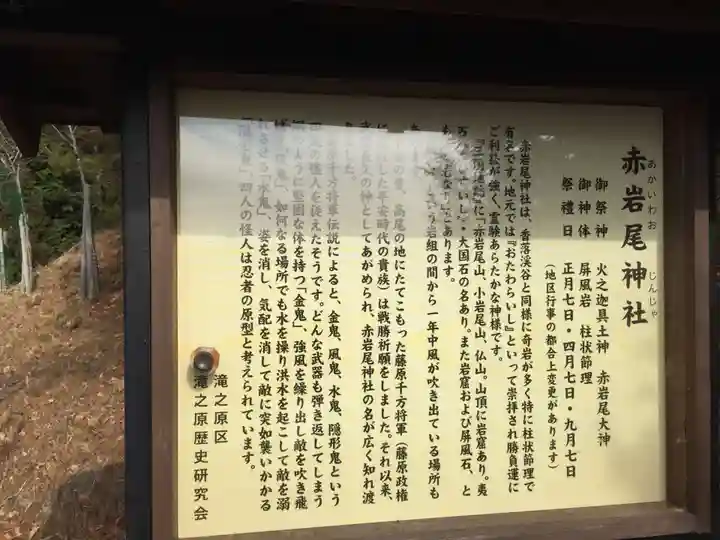 赤岩尾神社
あかいわお じんじゃ
御祭神 火之迦具土神 赤岩尾大神
御神体 屏風岩 柱状節理
祭禮日 正月七日・四月七日・九月七日
(地区行事の都合上変更があります)
赤岩尾神社は、香落渓谷と同様に奇岩が多く特に柱状節理で
有名です。地元では『おたわらいし』といって崇拝され勝負運に
ご利益が強く、霊験あらたかな神様です。
に「赤岩尾山、小岩尾山、仏山。山頂に岩窟あり。夷
石、 ・大国石の名あり。また岩窟および屏風石、と
も あります。
という岩組の間から一年中風が吹き出ている場所も
高尾の地にたてこもった藤原千方将軍(藤原政権
平安時代の貴族)は戦勝祈願をしました。それ以来、
の神としてあがめられ、赤岩尾神社の名が広く知れ渡
ました。
千方将軍伝説によると、金鬼、風鬼、水鬼、隠形鬼という
の怪人を従えたそうです。どんな武器も弾き返してしまう
堅固な体を持つ「金鬼」、強風を繰り出し敵を吹き飛
、如何なる場所でも水を操り洪水を起こして敵を溺
「水鬼」、姿を消し、気配を消して敵に突如襲いかかる
四人の怪人は忍者の原型と考えられています。
滝之原区
滝之原歴史研究会